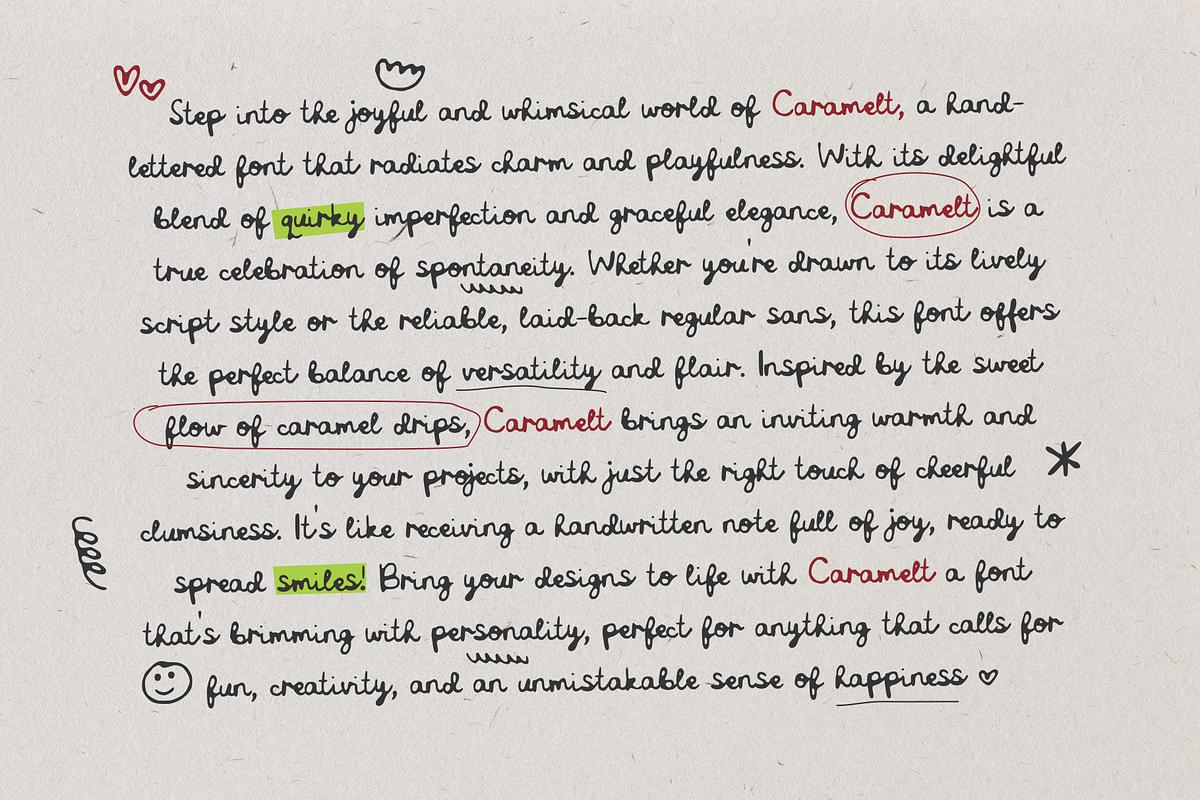 Step into the joyful and whimsical world of Caramelt, a hand-
lettered font that radiates charm and playfulness. With its delightful
blend of quirky imperfection and graceful elegance, Caramelt is a
true celebration of spontaneity. Whether you're drawn to its lively
script style or the reliable, laid-back regular sans, this font offers
the perfect balance of versatility and flair. Inspired by the sweet
flow of caramel drips, Caramelt brings an inviting warmth and
sincerity to your projects, with just the right touch of cheerful
clumsiness. It's like receiving a handwritten note full of joy, ready to
spread smiles! Bring your designs to life with Caramelt a font
that's brimming with personality, perfect for anything that calls for
fun, creativity, and an unmistakable sense of happiness